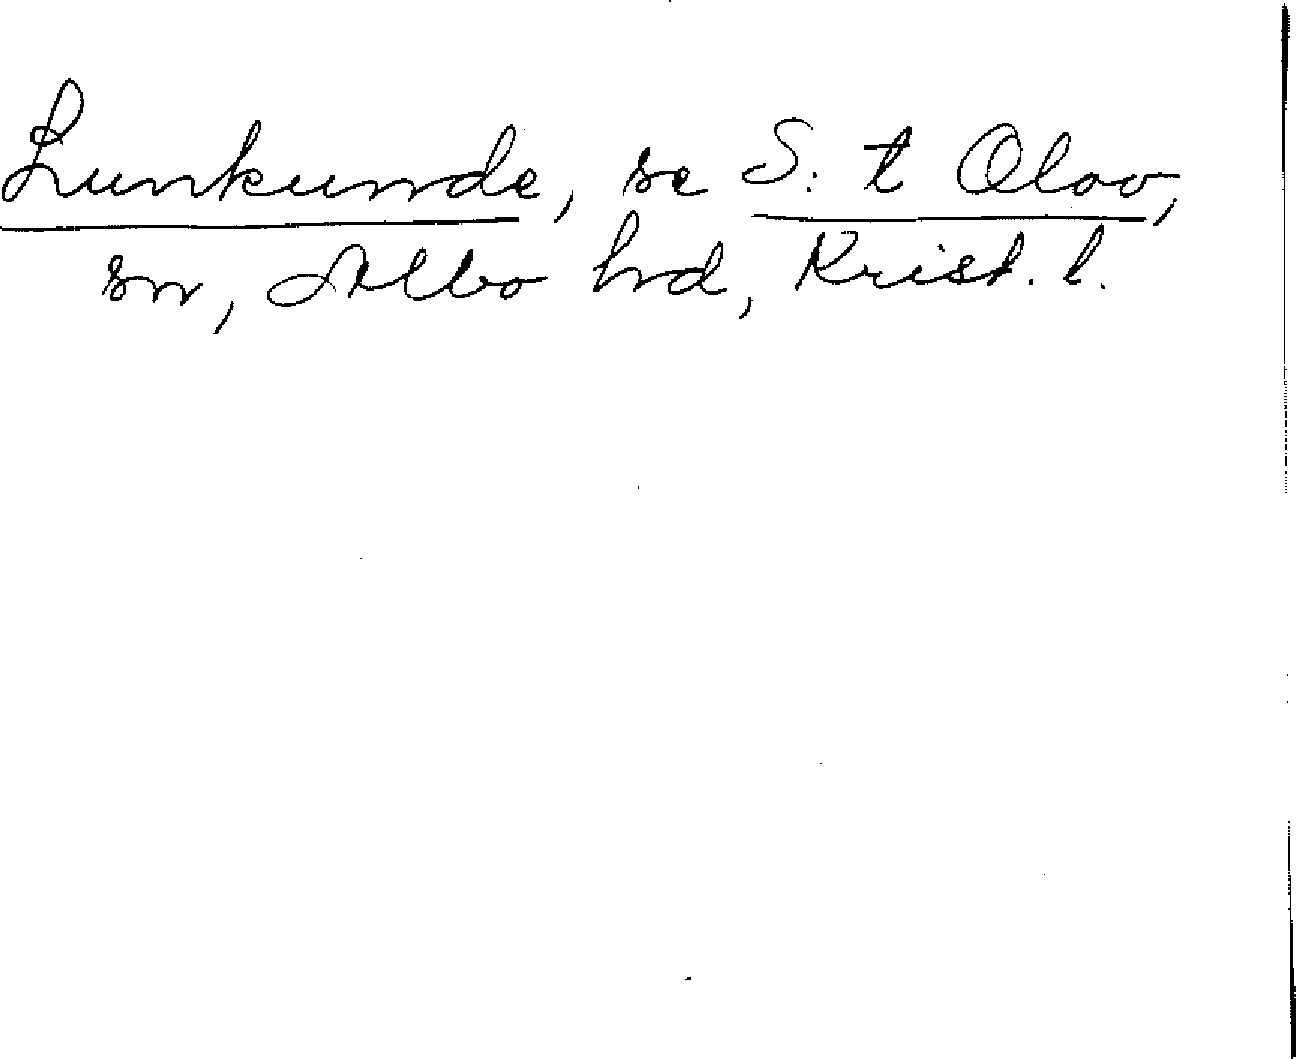 Lunkunde, se S:t Olov,
sn, Albo hd, Krist. l.